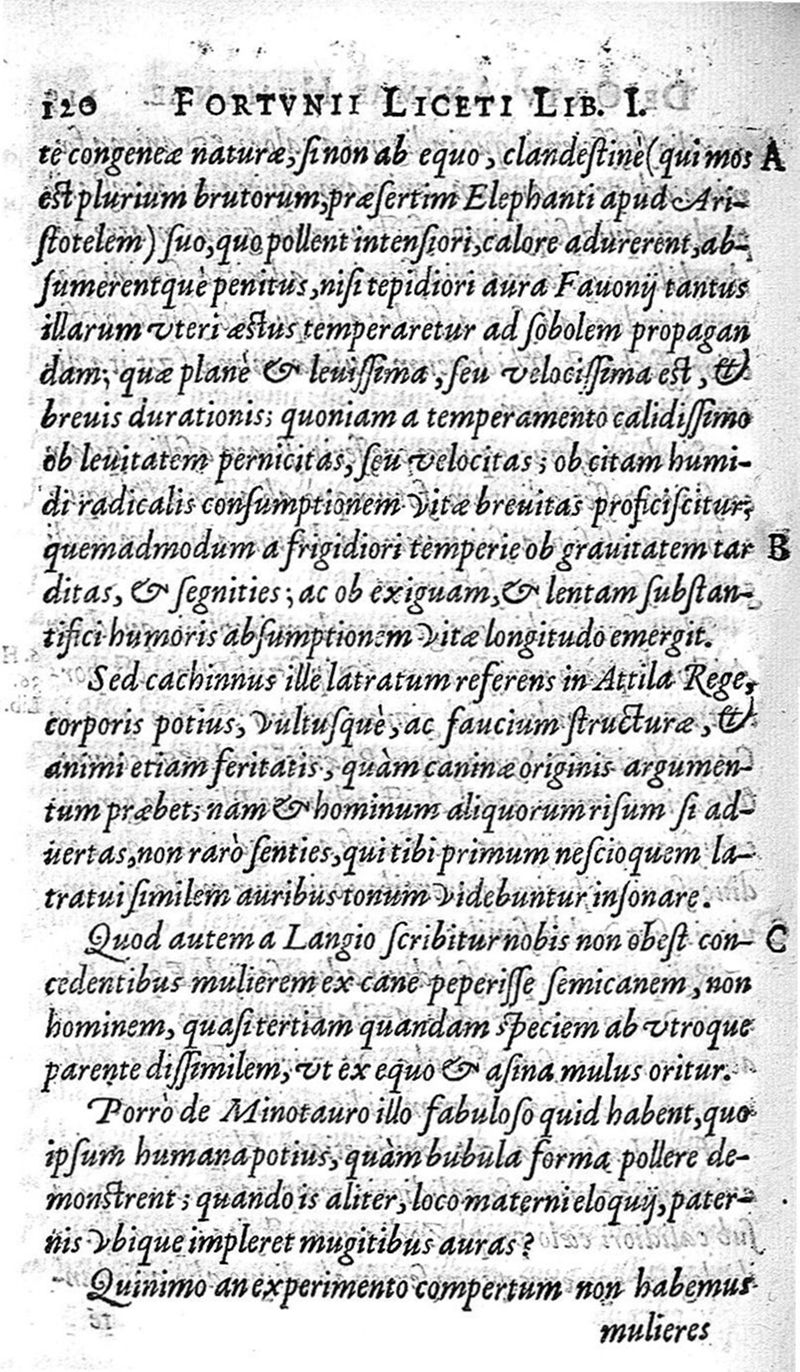 120 FORTVNII LICETI LIB. I.
te congeneæ naturæ, si non ab equo, clandestinè (qui mos A
est plurium brutorum, præsertim Elephanti apud Ari-
stotelem) suo, quo pollent intensiori, calore adurerent, ab-
sumerentquè penitus, nisi tepidiori aura Fauonij tantus
illarum vteri æstus temperaretur ad sobolem propagan
dam; quæ planè & leuissima, seu velocissima est, &
breuis durationis; quoniam a temperamento calidissimo
ob leuitatem pernicitas, seu velocitas; ob citam humi-
di radicalis consumptionem vitæ breuitas proficiscitur;
quemadmodum a frigidiori temperie ob grauitatem tar B
ditas, & segnities; ac ob exiguam, & lentam substan-
tifici humoris absumptionem vitæ longitudo emergit.
Sed cachinnus ille latratum referens in Attila Rege,
corporis potius, vultusquè, ac faucium structuræ, &
animi etiam feritatis, quàm caninæ originis argumen-
tum præbet; nam & hominum aliquorum risum si ad-
uertas, non rarò senties, qui tibi primum nescio quem la-
tratui similem auribus tonum videbuntur insonare.
Quod autem a Langio scribitur nobis non obest con- C
cedentibus mulierem ex cane peperisse semicanem, non
hominem, quasi tertiam quandam speciem ab vtroque
parente dissimilem, vt ex equo & asina mulus oritur.
Porrò de Minotauro illo fabuloso quid habent, quo
ipsum humana potius, quàm bubula forma pollere de-
monstrent; quando is aliter, loco materni eloquij, pater-
nis vbique impleret mugitibus auras?
Quinimo an experimento compertum non habemus
mulieres